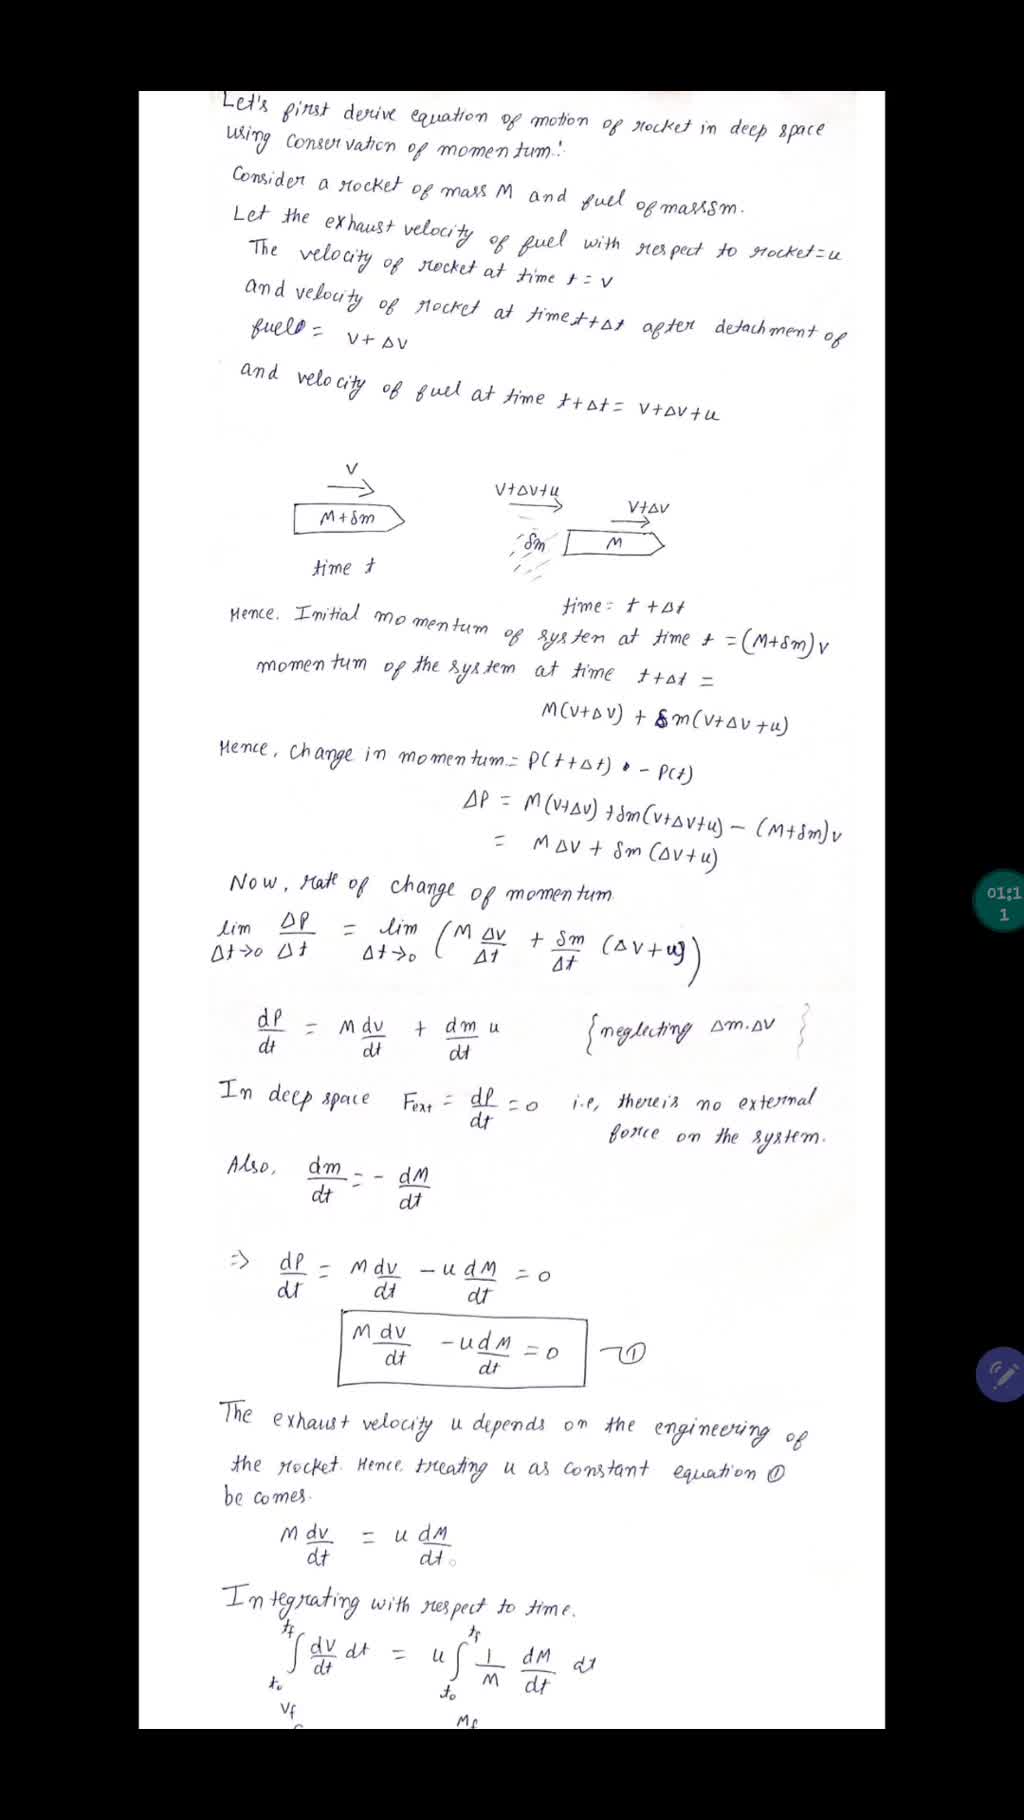 Let's first derive equation of motion of rocket in deep space
using conservation of momentum:
Consider a rocket of mass M and fuel of mass δm.
Let the exhaust velocity of fuel with respect to rocket = u
The velocity of rocket at time t = v
and velocity of rocket at time t+Δt after detachment of
fuel = v+Δv
and velocity of fuel at time t+Δt = v+Δv+u
v
M+δm
time t
v+Δv+u
v+Δv
δm
M
time = t+Δt
Hence. Initial momentum of system at time t = (M+δm)v
momentum of the system at time t+Δt =
M(v+Δv) + δm(v+Δv+u)
Hence, change in momentum = P(t+Δt) - P(t)
ΔP = M(v+Δv) + δm(v+Δv+u) - (M+δm)v
= MΔv + δm(Δv+u)
Now, rate of change of momentum
lim Δt→0 ΔP/Δt = lim Δt→0 (M Δv/Δt + δm/Δt (Δv+u))
dP/dt = M dv/dt + dm/dt u {neglecting Δm.Δv}
In deep space Fext = dP/dt = 0 i.e, there is no external
force on the system.
Also, dm/dt = - dM/dt
⇒ dP/dt = M dv/dt - u dM/dt = 0
M dv/dt - u dM/dt = 0 —①
The exhaust velocity u depends on the engineering of
the rocket. Hence treating u as constant equation ①
becomes.
M dv/dt = u dM/dt.
Integrating with respect to time.
∫t₀^tf dv/dt dt = u ∫t₀^tf 1/M dM/dt dt
vf Mf
01:1
1